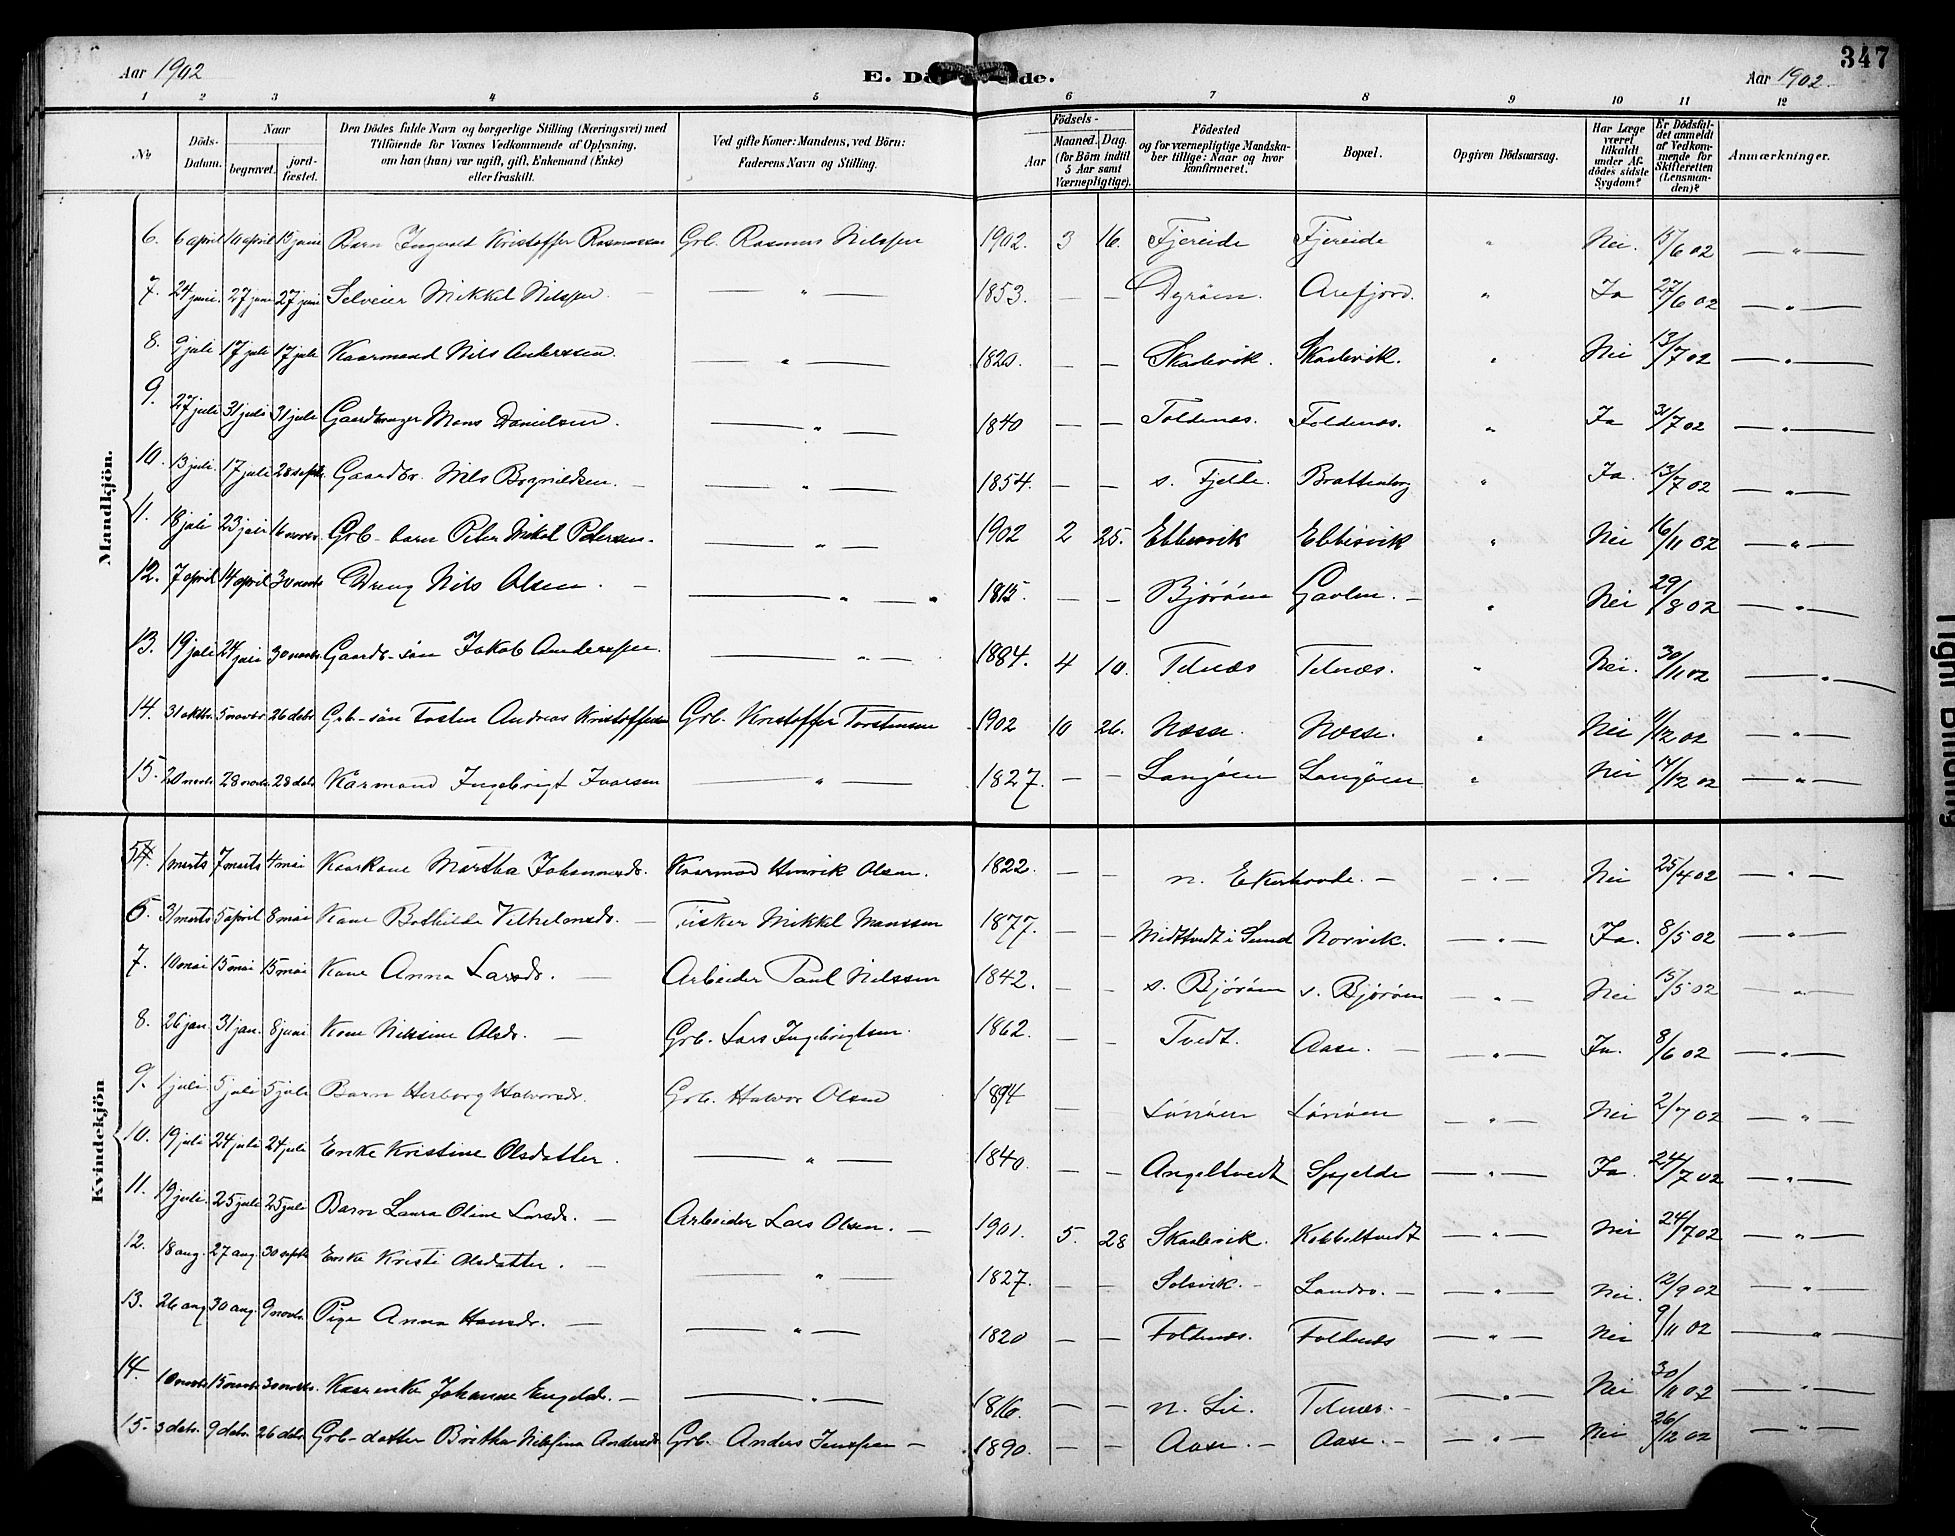 347
Aar 1902 E. Dö de. Aar 1902.
1 2 3 4 5 6 7 8 9 10 11 12
No Döds-Datum. Naar begravet. jord-fæstet. Den Dödes fulde Navn og borgerlige Stilling (Næringsvei) med Tilföiende for Voxnes Vedkommende af Oplysning, om han (hun) var ugift, gift, Enkemand (Enke) eller fraskilt. Ved gifte Koner: Mandens, ved Börn: Faderens Navn og Stilling. Födsels- Aar Maaned. Dag. (for Börn indtil 5 Aar samt Værnepligtige). Födested og for værnepligtige Mandskaber tillige: Naar og hvor konfirmeret. Bopæl. Opgiven Dödsaarsag. Har Læge været tilkaldt under Afdödes sidste Sygdom? Er Dödsfaldet anmeldt af Vedkommende for Skifteretten (Lensmanden)? Anmærkninger.
Mandkjön.
6. 6 april 10 april 15 juni Barn Ingvald Kristoffer Rasmussen Grb. Rasmus Nilssen 1902. 3 16. Fjereide Fjereide " Nei. 15/6 02 — " —
7. 24 juni. 27 juni 27 juni Selveier Mikkel Nilssen — " — 1853. — — Dyröen. Arefjord. " Ja 27/6 02 — " —
8. 9 juli 17 juli 17 juli Kaarmand Nils Anderssen. — " — 1820. — — Skalevik. Skalevik. " Nei 13/7 02 — " —
9. 27 juli 31 juli 31 juli Gaardbruger Mons Danielsen. — " — 1840 — — Foldenæs. Foldenæs. " Ja 31/7 02 — " —
10. 13 juli. 17 juli 28 septb. Gaardbr. Nils Brynildsen. — " — 1854. — — s. Fjelde. Brattenborg " Ja. 13/7 02 — " —
11. 18 juli 23 juli 16 novbr. Grb-barn Peter Mikal Petersen. — " — 1902 2 25. Ebbesvik Ebbesvik " Nei 16/11 02 — " —
12. 7 april 14 april 30 novbr Dreng Nils Olsen. — — " — " 1815. — — Björöen Gavlen. — " Nei 29/8 02 — " —
13. 19 juli 24 juli 30 novbr. Gaardb-sön Jakob Anderssen. — " — 1884. 4 10. Telnæs Telnæs. " Nei. 30/11 02 — " —
14. 31 oktbr. 5 novbr 26 debr Grb-sön Tosten Andreas Kristoffersen Grb. Kristoffer Torstensen 1902 10 26. Næsse. Næsse. " Nei 11/12 02 — " —
15. 20 novbr 28 novbr. 28 debr. Kårmand Ingebrigt Ivarsen — " — 1827. — — Langöen Langöen " Nei 14/12 02 — " —
Kvindekjön
54. 1 marts 7 marts 4 mai Kaarkone Martha Johannesdr. Kaarmand Henrik Olsen. 1822. — — n. Ekerhovde. — — " — Nei 25/4 02 — " —
6. 31 marts 5 april 8 mai Kone Bothilde Vilhelmsdr. — Fisker Mikkel Monssen 1877. — — Midttvedt i Sund Norvik. — " — Ja. 8/5 02 — " —
7. 10 mai 15 mai 15 mai Kone Anna Larsdr. — Arbeider Paul Nilssen 1842. — — s. Björöen s. Björöen — " — Nei 15/5 02 — " —
8. 26 jan. 31 jan. 8 juni Kone Nilsine Olsdr. — Grb. Lars Ingebrigtsen. 1862. — — Tvedt. Aase. — — " — Ja. 8/6 02 — " —
9. 1 juli. 5 juli 5 juli Barn Herborg Halvorsdr. Grb. Halvor Olsen 1894 — — Lönöen Lönöen — " — Nei 2/7 02 — " —
10. 19 juli 24 juli 24 juli Enke Kristine Olsdatter. — " — 1840. — — Angeltvedt Spjelde — " — Ja. 24/7 02 — " —
11. 19 juli. 25 juli 25 juli Barn Laura Oline Larsdr. — Arbeider Lars Olsen. — 1901. 5. 28 Skalevik. Kobbeltvedt — " — Nei 24/7 02 — " —
12. 18 aug. 27 aug. 30 septb Enke Kristi Olsdatter. — — " — 1827. — — Solsvik. — Landro. — — " — Nei. 12/9 02 — " —
13. 26 aug 30 aug. 9 novbr. Pige Anna Hansdr. — — " — 1820 — — Foldnæs. Foldnæs — " — Nei 9/11 02 — " —
14. 10 novbr 15 novbr 30 novbr. Kaarenke Johanne Engelds. — — " — 1816. — — n. Lie. Telnæs. — — " — Nei 30/11 02 — " —
15. 3 debr. 9 debr. 26 debr Grb-datter Britha Nilsina Andersdr Grb. Anders Jenssen — 1890. — — Aase. — Aase. — — " — Nei 26/12 02 — " —